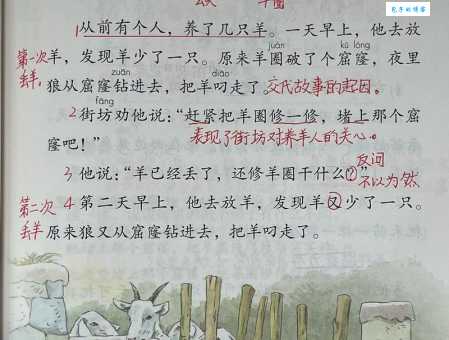 1从前有个人，养了几只羊。一天早上，他去放
第一次
丢羊
羊，发现羊少了一只。原来羊圈破了个窟窿，夜里
juàn kū lóng
狼从窟窿钻进去，把羊叼走了。交代故事的起因。
zuān diāo
2街坊劝他说：“赶紧把羊圈修一修，堵上那个窟
fāng
窿吧！”
表现了街坊对养羊人的关心。
3他说：“羊已经丢了，还修羊圈干什么？”
反问
不以为然
第二次
丢羊
4第二天早上，他去放羊，发现羊又少了一只。
原来狼又从窟窿钻进去，把羊叼走了。